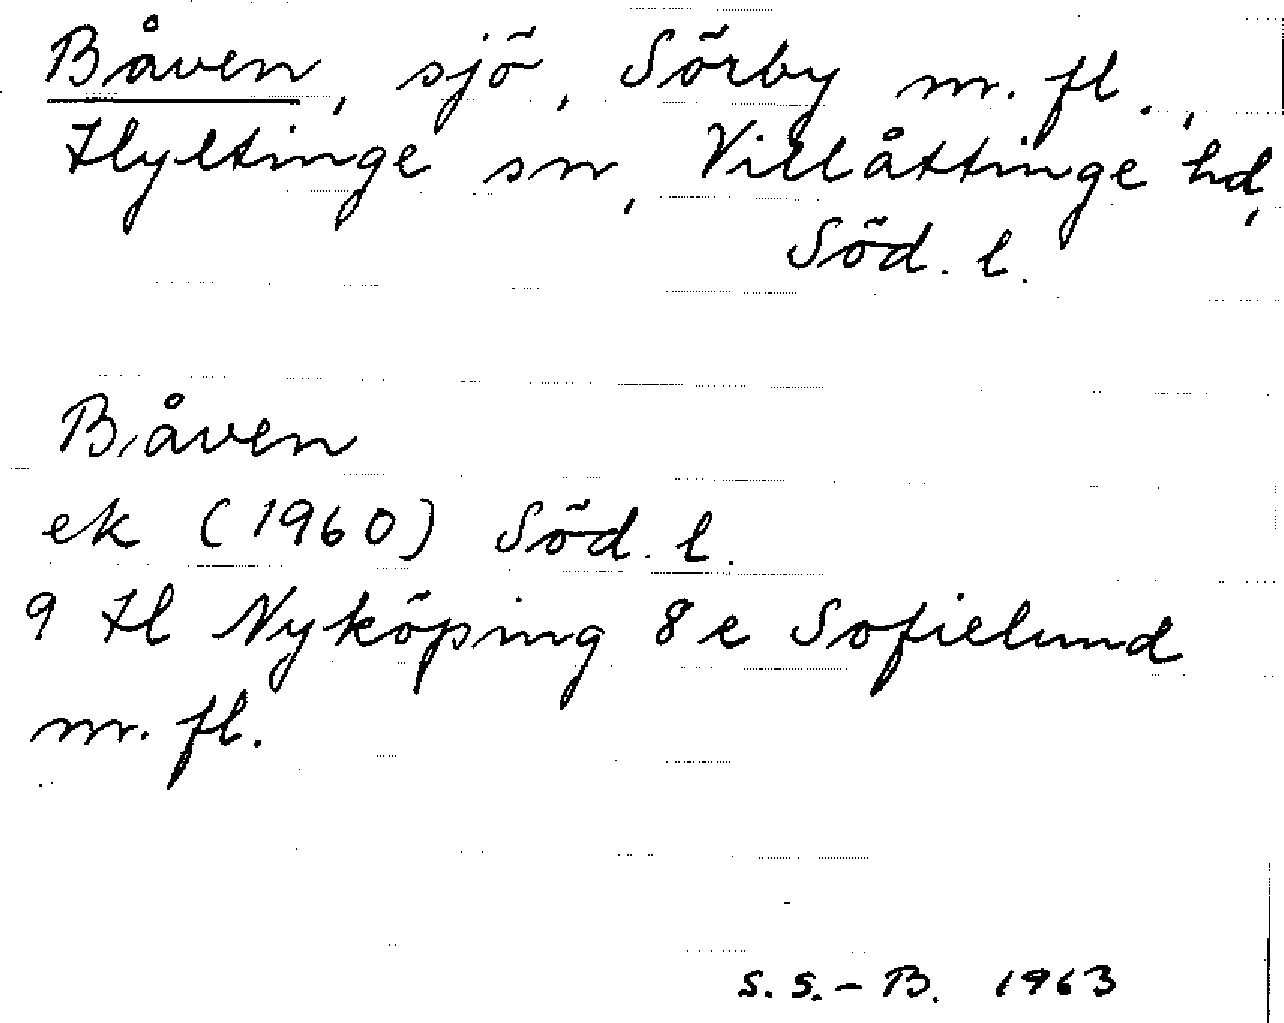 Båven, sjö, Sörby m. fl.,
Hyltinge sn, Villåttinge hd,
Söd. l.
Båven
ek (1960) Söd. l.
9 H Nyköping 8 e Sofielund
m. fl.
S. S.-B. 1963